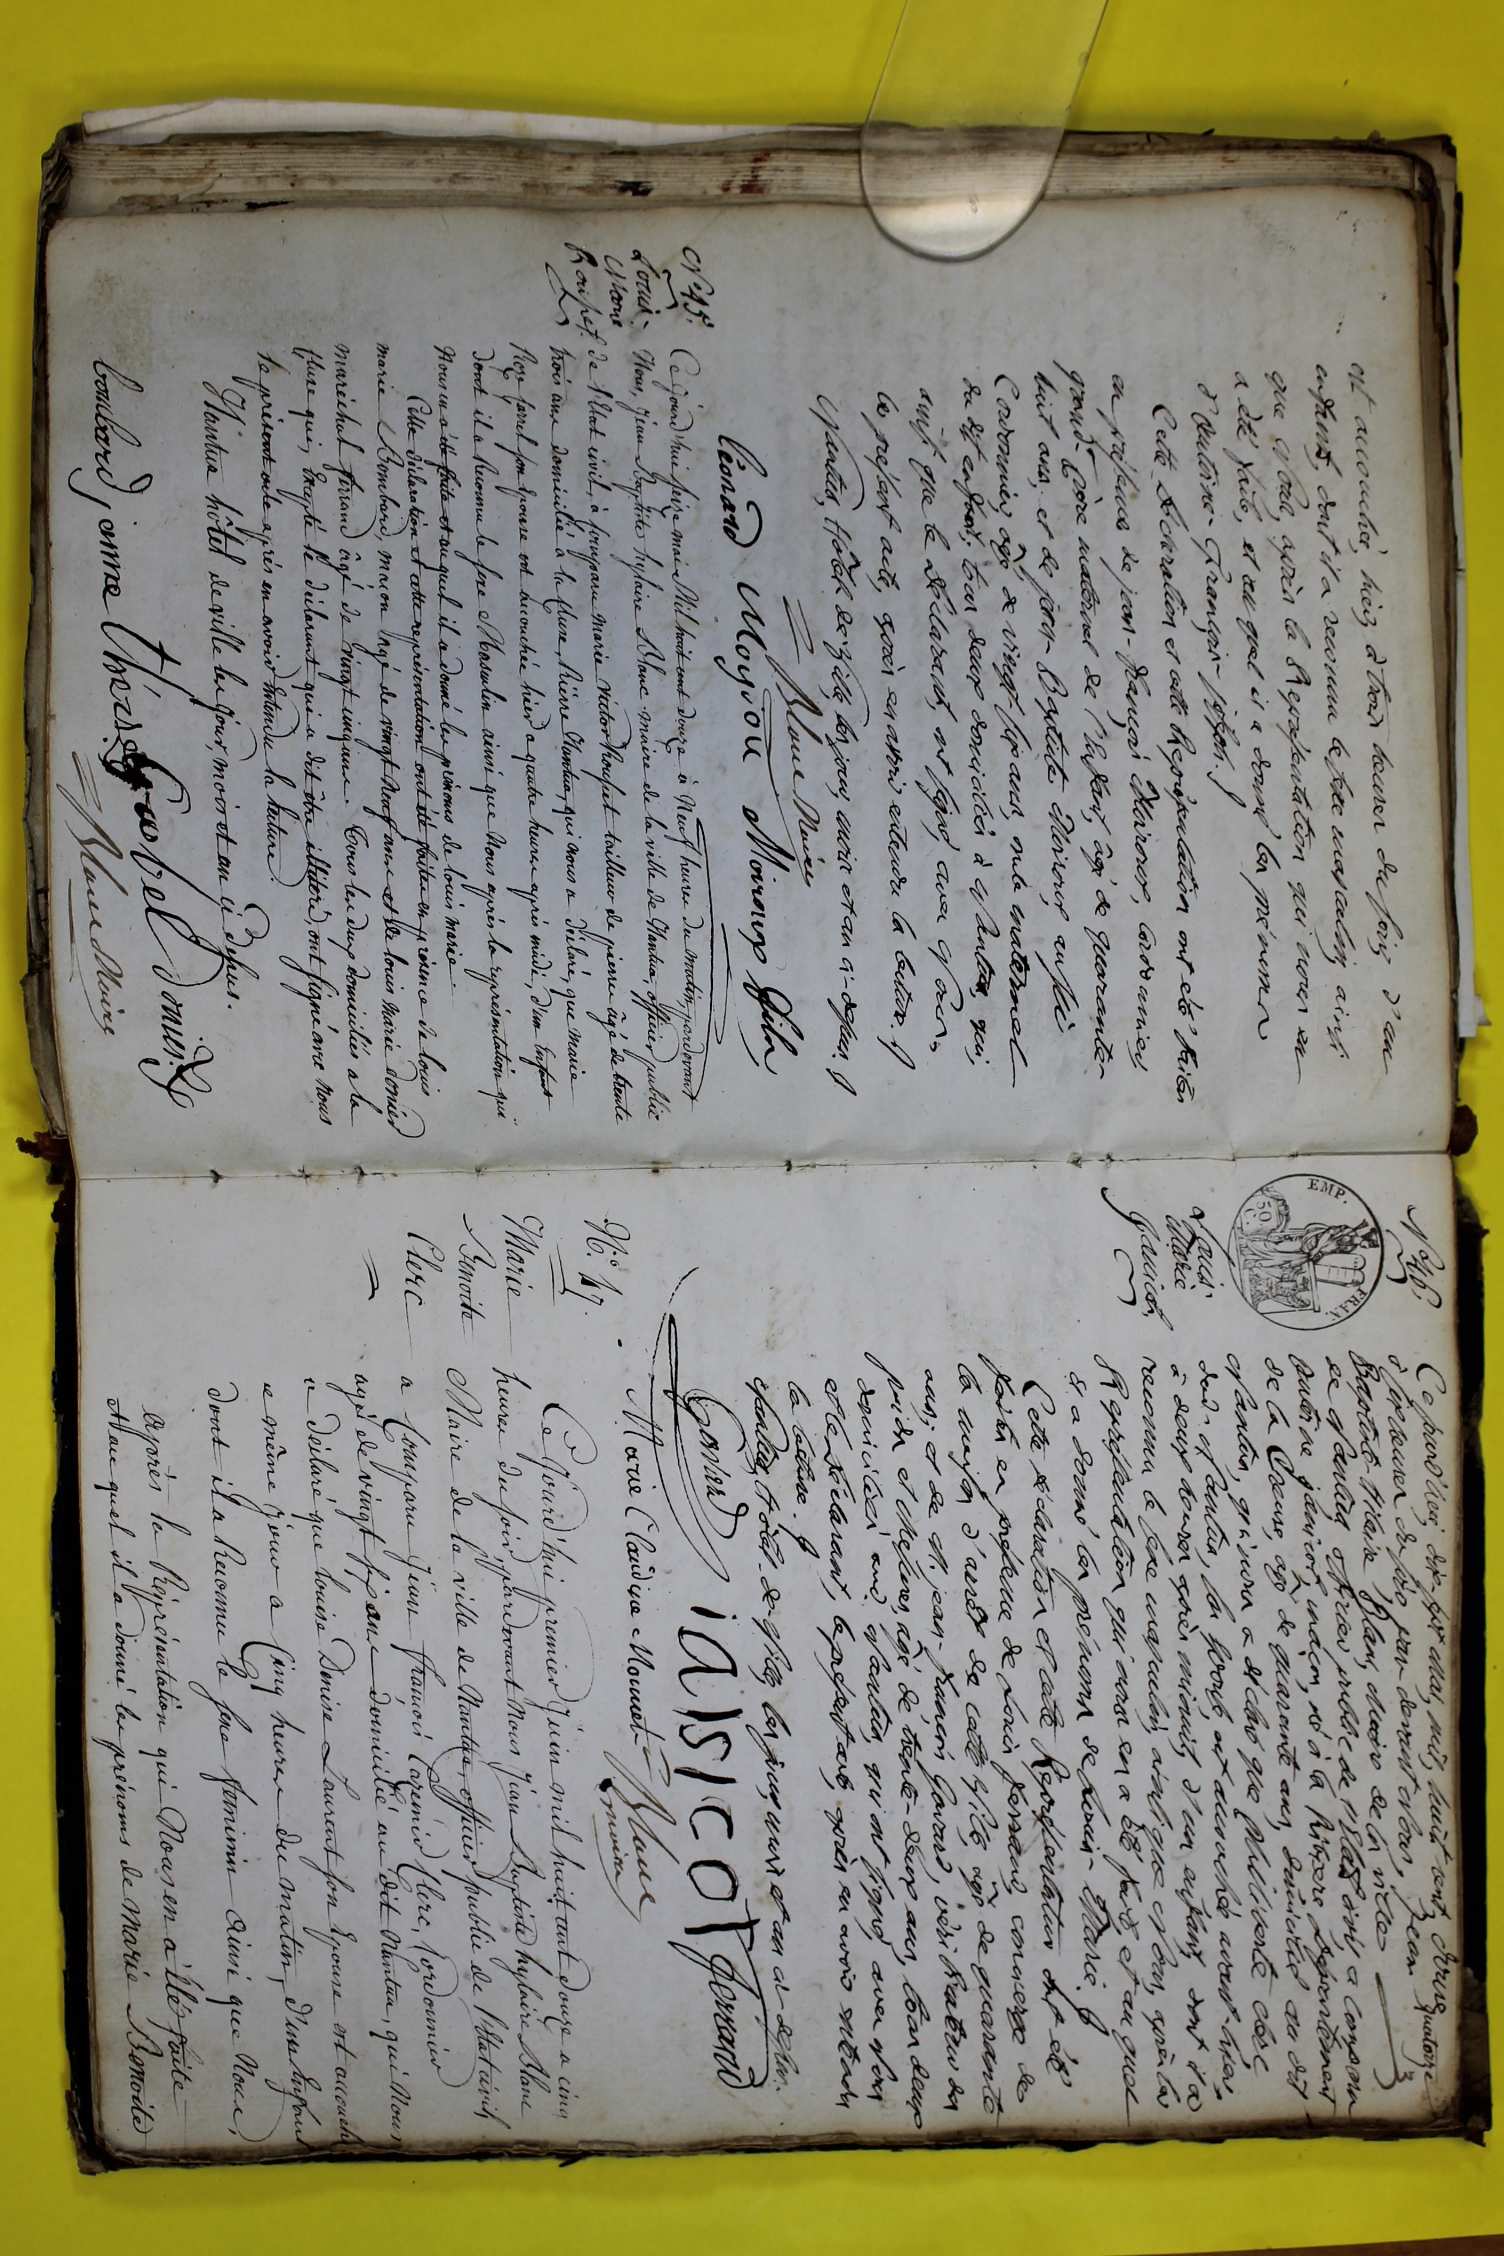 est accouchée, hiez à trois heures du soir d'un
enfant, dont il a reconnu le sexe masculin, ainsi
que Nous, après la Représentation qui nous en
a été faite, et au quel il a donné les prénoms
d'Antoine-François-joseph.
Cette déclaration et cette Représentation ont été faites
en présence de jean-françois Moiroux, cordonnier,
grand-père maternel de l'enfant, âgé de quarante-
huit ans, et de jean-Baptiste Moiroux aussi
Cordonnier, âgé de vingt six ans, oncle maternel
du dit enfant, tous deux domiciliés à Nantua, qui,
ainsi que le déclarant, ont signé, avec Nous,
le présent acte, après en avoir entendu la lecture.
Nantua, Hôtel de ville, les jour, mois et an ci-dessus.
Blanc Maire
léonard Moyrou Moiroux fils
N° 45.
Louis
Marie
Roupet
Ce jourd'hui seize mai Mil huit cent douze à Neuf heures du matin, pardevant
Nous, Jean Baptiste hylaire Blanc maire de la ville de Nantua, officier public
de l'Etat civil, a comparu marie victor Roupet tailleur de pierre âgé de trente
trois ans domicilié à la Cluse, hière Nantua, qui nous a déclaré, que marie
Roze son Epouse est accouchée hier a quatre heures après midi, d'un Enfant
dont il a Reconnu le sexe Masculin ainsi que Nous après la représentation qui
Nous en a été faite et auquel il a donné les prénoms de louis marie.
Cette déclaration et cette représentation ont été faites en présence de louis
marie Bombard, maçon âgé de vingt Neuf ans et de louis marie
maréchal ferrand âgé de vingt cinq ans. Tous les deux domiciliés a la
Cluse qui, Excepté le déclarant qui a dit être illitéré, ont signé avec nous
le présent acte après en avoir Entendu la lecture.
Nantua hôtel de ville les jour, mois et an ci dessus.
Blanc Maire
N° 46.
Louis
Marie
Janicot
EMP. FRAN.
50 C.
Ce jourd'huy, dix-sept may, mil huit cent douze, quatorze
heures du soir, par devant Nous, Jean
Baptiste Hilaire Blanc, Maire de la ville
de Nantua officier public de l'état civil, a comparu
Antoine janicot, maçon, né à la Département
de la Creuse, âgé de quarante ans, domicilié au dit
Nantua, qui nous a déclaré que
dud. Nantua, son épouse est accouchée avant-hier
à deux heures après minuit, d'un enfant dont il a
reconnu le sexe masculin, ainsi que Nous, après la
Représentation qui nous en a été faite, et au quel
il a donné les prénoms de Louis-Marie.
Cette déclaration et cette Représentation ont été
faites en présence de Louis concierge de
la maison d'arrêt de cette ville, âgé de quarante
ans, et de M. jean-françois
poids et Mesures, âgé de trente-deux ans, tous deux
domiciliés aud. Nantua, qui ont signé, avec Nous
et le déclarant, le présent acte, après en avoir entendu
la lecture.
Nantua, hôtel-de-ville, les jour, mois et an ci-dessus.
iasicot
Marie Claudine Monnet
Blanc
maire
N.° 47.
Marie
Benoite
Clerc
Ce Jourd'hui premier Juin mil huit cent douze a cinq
heures du soir, pardevant Nous Jean Baptiste hylaire Blanc
Maire de la ville de Nantua, officier public de l'Etat civil
a Comparu Jean françois Clerc, Cordonnier
agé de vingt six ans domicilié au dit Nantua, qui Nous
a déclaré que louise Denise Laurent son Epouse est accouchée
ce même Jour a Cinq heures du matin, d'un Enfant
dont il a Reconnu le sexe féminin ainsi que Nous,
après la Représentation qui Nous en a été faite
et au quel il a donné les prénoms de Marie Benoite